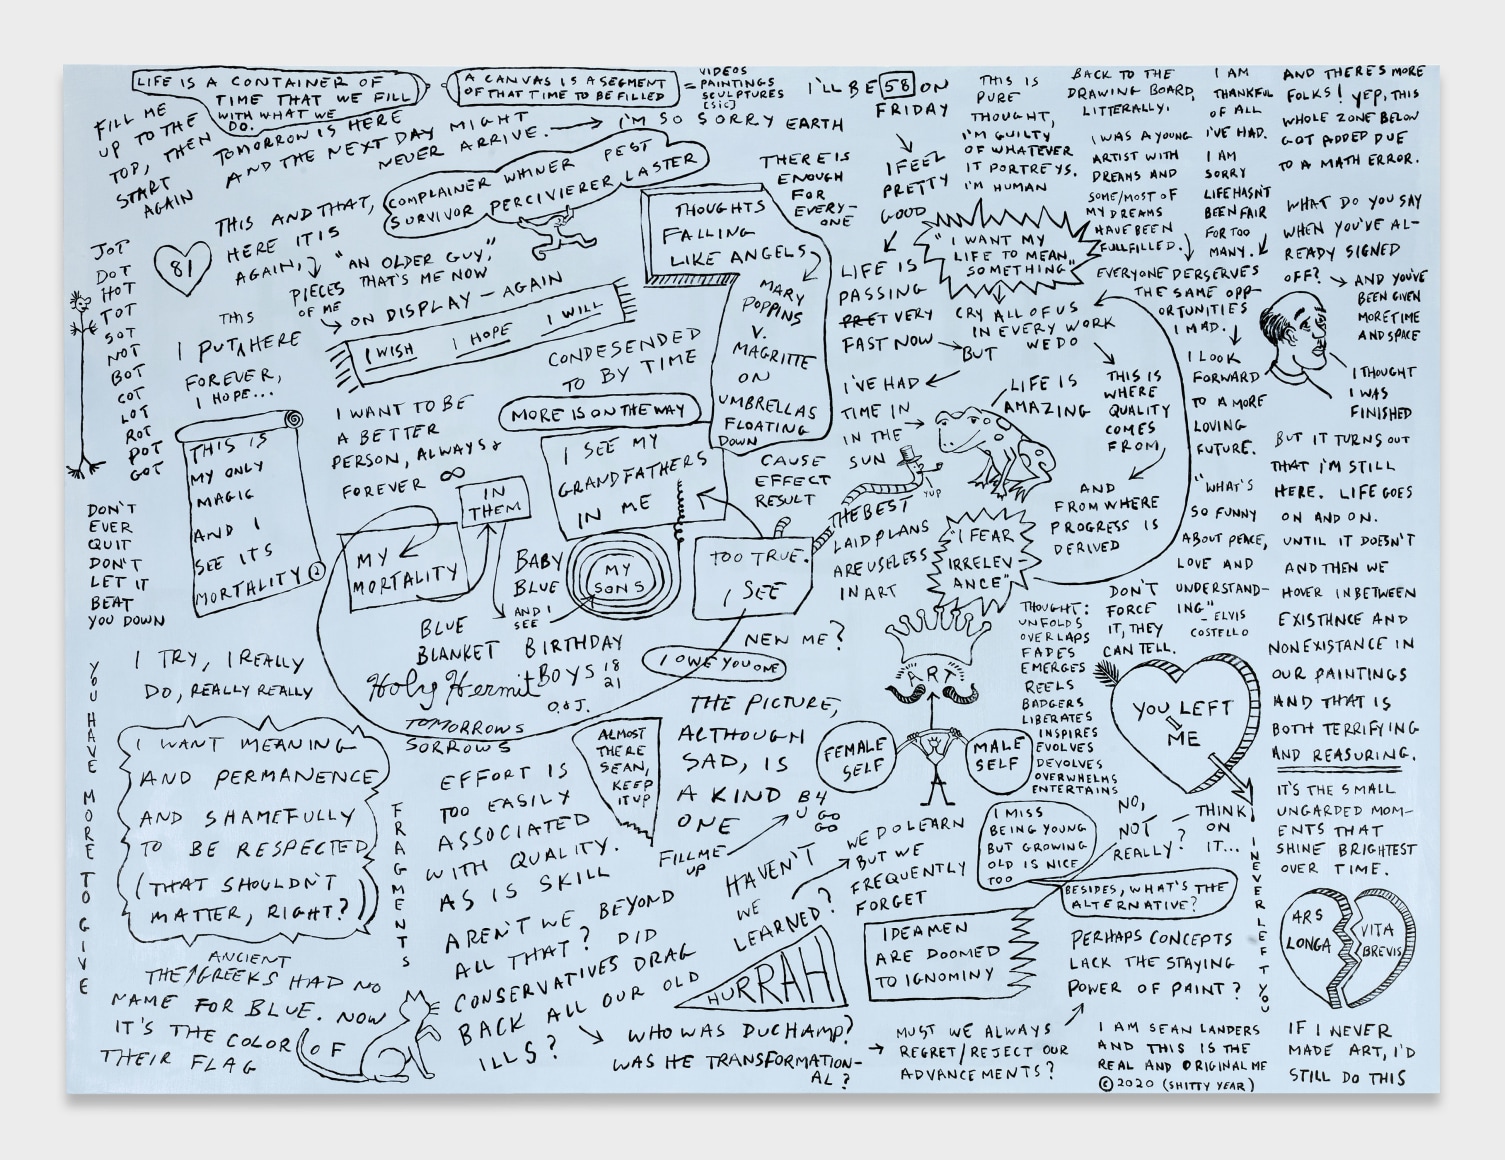 LIFE IS A CONTAINER OF
TIME THAT WE FILL
WITH WHAT WE
DO.
A CANVAS IS A SEGMENT
OF THAT TIME TO BE FILLED
=
VIDEOS
PAINTINGS
SCULPTURES
[SIC]
FILL ME
UP TO THE
TOP, THEN
START
AGAIN
TOMORROW IS HERE
AND THE NEXT DAY MIGHT
NEVER ARRIVE.
I'M SO SORRY EARTH
I'LL BE 58 ON
FRIDAY
I FEEL
PRETTY
GOOD
LIFE IS
PASSING
PRET VERY
FAST NOW
BUT
I'VE HAD
TIME IN
IN THE
SUN
THIS IS
PURE
THOUGHT,
I'M GUILTY
OF WHATEVER
IT PORTREYS.
I'M HUMAN
BACK TO THE
DRAWING BOARD,
LITTERALLY.
I WAS A YOUNG
ARTIST WITH
DREAMS AND
SOME/MOST OF
MY DREAMS
HAVE BEEN
FULLFILLED.
I AM
THANKFUL
OF ALL
I'VE HAD.
I AM
SORRY
LIFE HASN'T
BEEN FAIR
FOR TOO
MANY.
EVERYONE DERSERVES
THE SAME OPP-
ORTUNITIES
I HAD.
I LOOK
FORWARD
TO A MORE
LOVING
FUTURE.
"WHAT'S
SO FUNNY
ABOUT PEACE,
LOVE AND
UNDERSTAND-
ING"
- ELVIS
COSTELLO
AND THERE'S MORE
FOLKS! YEP, THIS
WHOLE ZONE BELOW
GOT ADDED DUE
TO A MATH ERROR.
WHAT DO YOU SAY
WHEN YOU'VE AL-
READY SIGNED
OFF?
AND YOU'VE
BEEN GIVEN
MORE TIME
AND SPACE
I THOUGHT
I WAS
FINISHED
BUT IT TURNS OUT
THAT I'M STILL
HERE. LIFE GOES
ON AND ON.
UNTIL IT DOESN'T
AND THEN WE
HOVER IN BETWEEN
EXISTHNCE AND
NONEXISTANCE IN
OUR PAINTINGS
AND THAT IS
BOTH TERRIFYING
AND REASURING.
IT'S THE SMALL
UNGARDED MOM-
ENTS THAT
SHINE BRIGHTEST
OVER TIME.
ARS
LONGA
VITA
BREVIS
IF I NEVER
MADE ART, I'D
STILL DO THIS
COMPLAINER WHINER PEST
SURVIVOR PERCIVIERER LASTER
THERE IS
ENOUGH
FOR
EVERY-
ONE
THIS AND THAT,
HERE IT IS
AGAIN,
PIECES
OF ME
"AN OLDER GUY,"
THAT'S ME NOW
ON DISPLAY - AGAIN
I WISH
I HOPE
I WILL
81
JOT
DOT
HOT
TOT
SOT
NOT
BOT
COT
LOT
ROT
POT
GOT
THIS
I PUT ^ HERE
FOREVER,
I HOPE...
THIS IS
MY ONLY
MAGIC
AND I
SEE ITS
MORTALITY
I WANT TO BE
A BETTER
PERSON, ALWAYS &
FOREVER ∞
CONDESENDED
TO BY TIME
MORE IS ON THE WAY
THOUGHTS
FALLING
LIKE ANGELS
MARY
POPPINS
V.
MAGRITTE
ON
UMBRELLAS
FLOATING
DOWN
"I WANT MY
LIFE TO MEAN
SOMETHING"
CRY ALL OF US
IN EVERY WORK
WE DO
THIS IS
WHERE
QUALITY
COMES
FROM
AND
FROM WHERE
PROGRESS IS
DERIVED
LIFE IS
AMAZING
YUP
I SEE MY
GRANDFATHERS
IN ME
CAUSE
EFFECT
RESULT
THE BEST
LAID PLANS
ARE USELESS
IN ART
"I FEAR
IRRELEV-
ANCE"
IN
THEM
MY
MORTALITY
BABY
BLUE
AND I
SEE
MY
SONS
TOO TRUE.
I SEE
DON'T
EVER
QUIT
DON'T
LET IT
BEAT
YOU DOWN
BLUE
BLANKET BIRTHDAY
BOYS 18
21
Holy Hermit
O. & J.
NEW ME?
I OWE YOU ONE
TOMORROWS
SORROWS
I TRY, I REALLY
DO, REALLY REALLY
YOU HAVE MORE TO GIVE
I WANT MEANING
AND PERMANENCE
AND SHAMEFULLY
TO BE RESPECTED
(THAT SHOULDN'T
MATTER, RIGHT?)
FRAGMENTS
EFFORT IS
TOO EASILY
ASSOCIATED
WITH QUALITY.
AS IS SKILL
AREN'T WE BEYOND
ALL THAT? DID
CONSERVATIVES DRAG
BACK ALL OUR OLD
ILLS?
ALMOST
THERE
SEAN,
KEEP
IT UP
THE PICTURE,
ALTHOUGH
SAD, IS
A KIND
ONE
FILL ME
UP
B4
U GO
GO
ART
FEMALE
SELF
MALE
SELF
THOUGHT:
UNFOLDS
OVERLAPS
FADES
EMERGES
REELS
BADGERS
LIBERATES
INSPIRES
EVOLVES
DEVOLVES
OVERWHELMS
ENTERTAINS
DON'T
FORCE
IT, THEY
CAN TELL.
YOU LEFT
ME
NO,
NOT
REALLY?
THINK
ON
IT...
I NEVER LEFT YOU
I MISS
BEING YOUNG
BUT GROWING
OLD IS NICE
TOO
BESIDES, WHAT'S THE
ALTERNATIVE?
HAVEN'T
WE
LEARNED?
WE DO LEARN
BUT WE
FREQUENTLY
FORGET
HURRAH
IDEAMEN
ARE DOOMED
TO IGNOMINY
PERHAPS CONCEPTS
LACK THE STAYING
POWER OF PAINT?
ANCIENT
THE / GREEKS HAD NO
NAME FOR BLUE. NOW
IT'S THE COLOR OF
THEIR FLAG
WHO WAS DUCHAMP?
WAS HE TRANSFORMATION-
AL?
MUST WE ALWAYS
REGRET/REJECT OUR
ADVANCEMENTS?
I AM SEAN LANDERS
AND THIS IS THE
REAL AND ORIGINAL ME
©2020 (SHITTY YEAR)